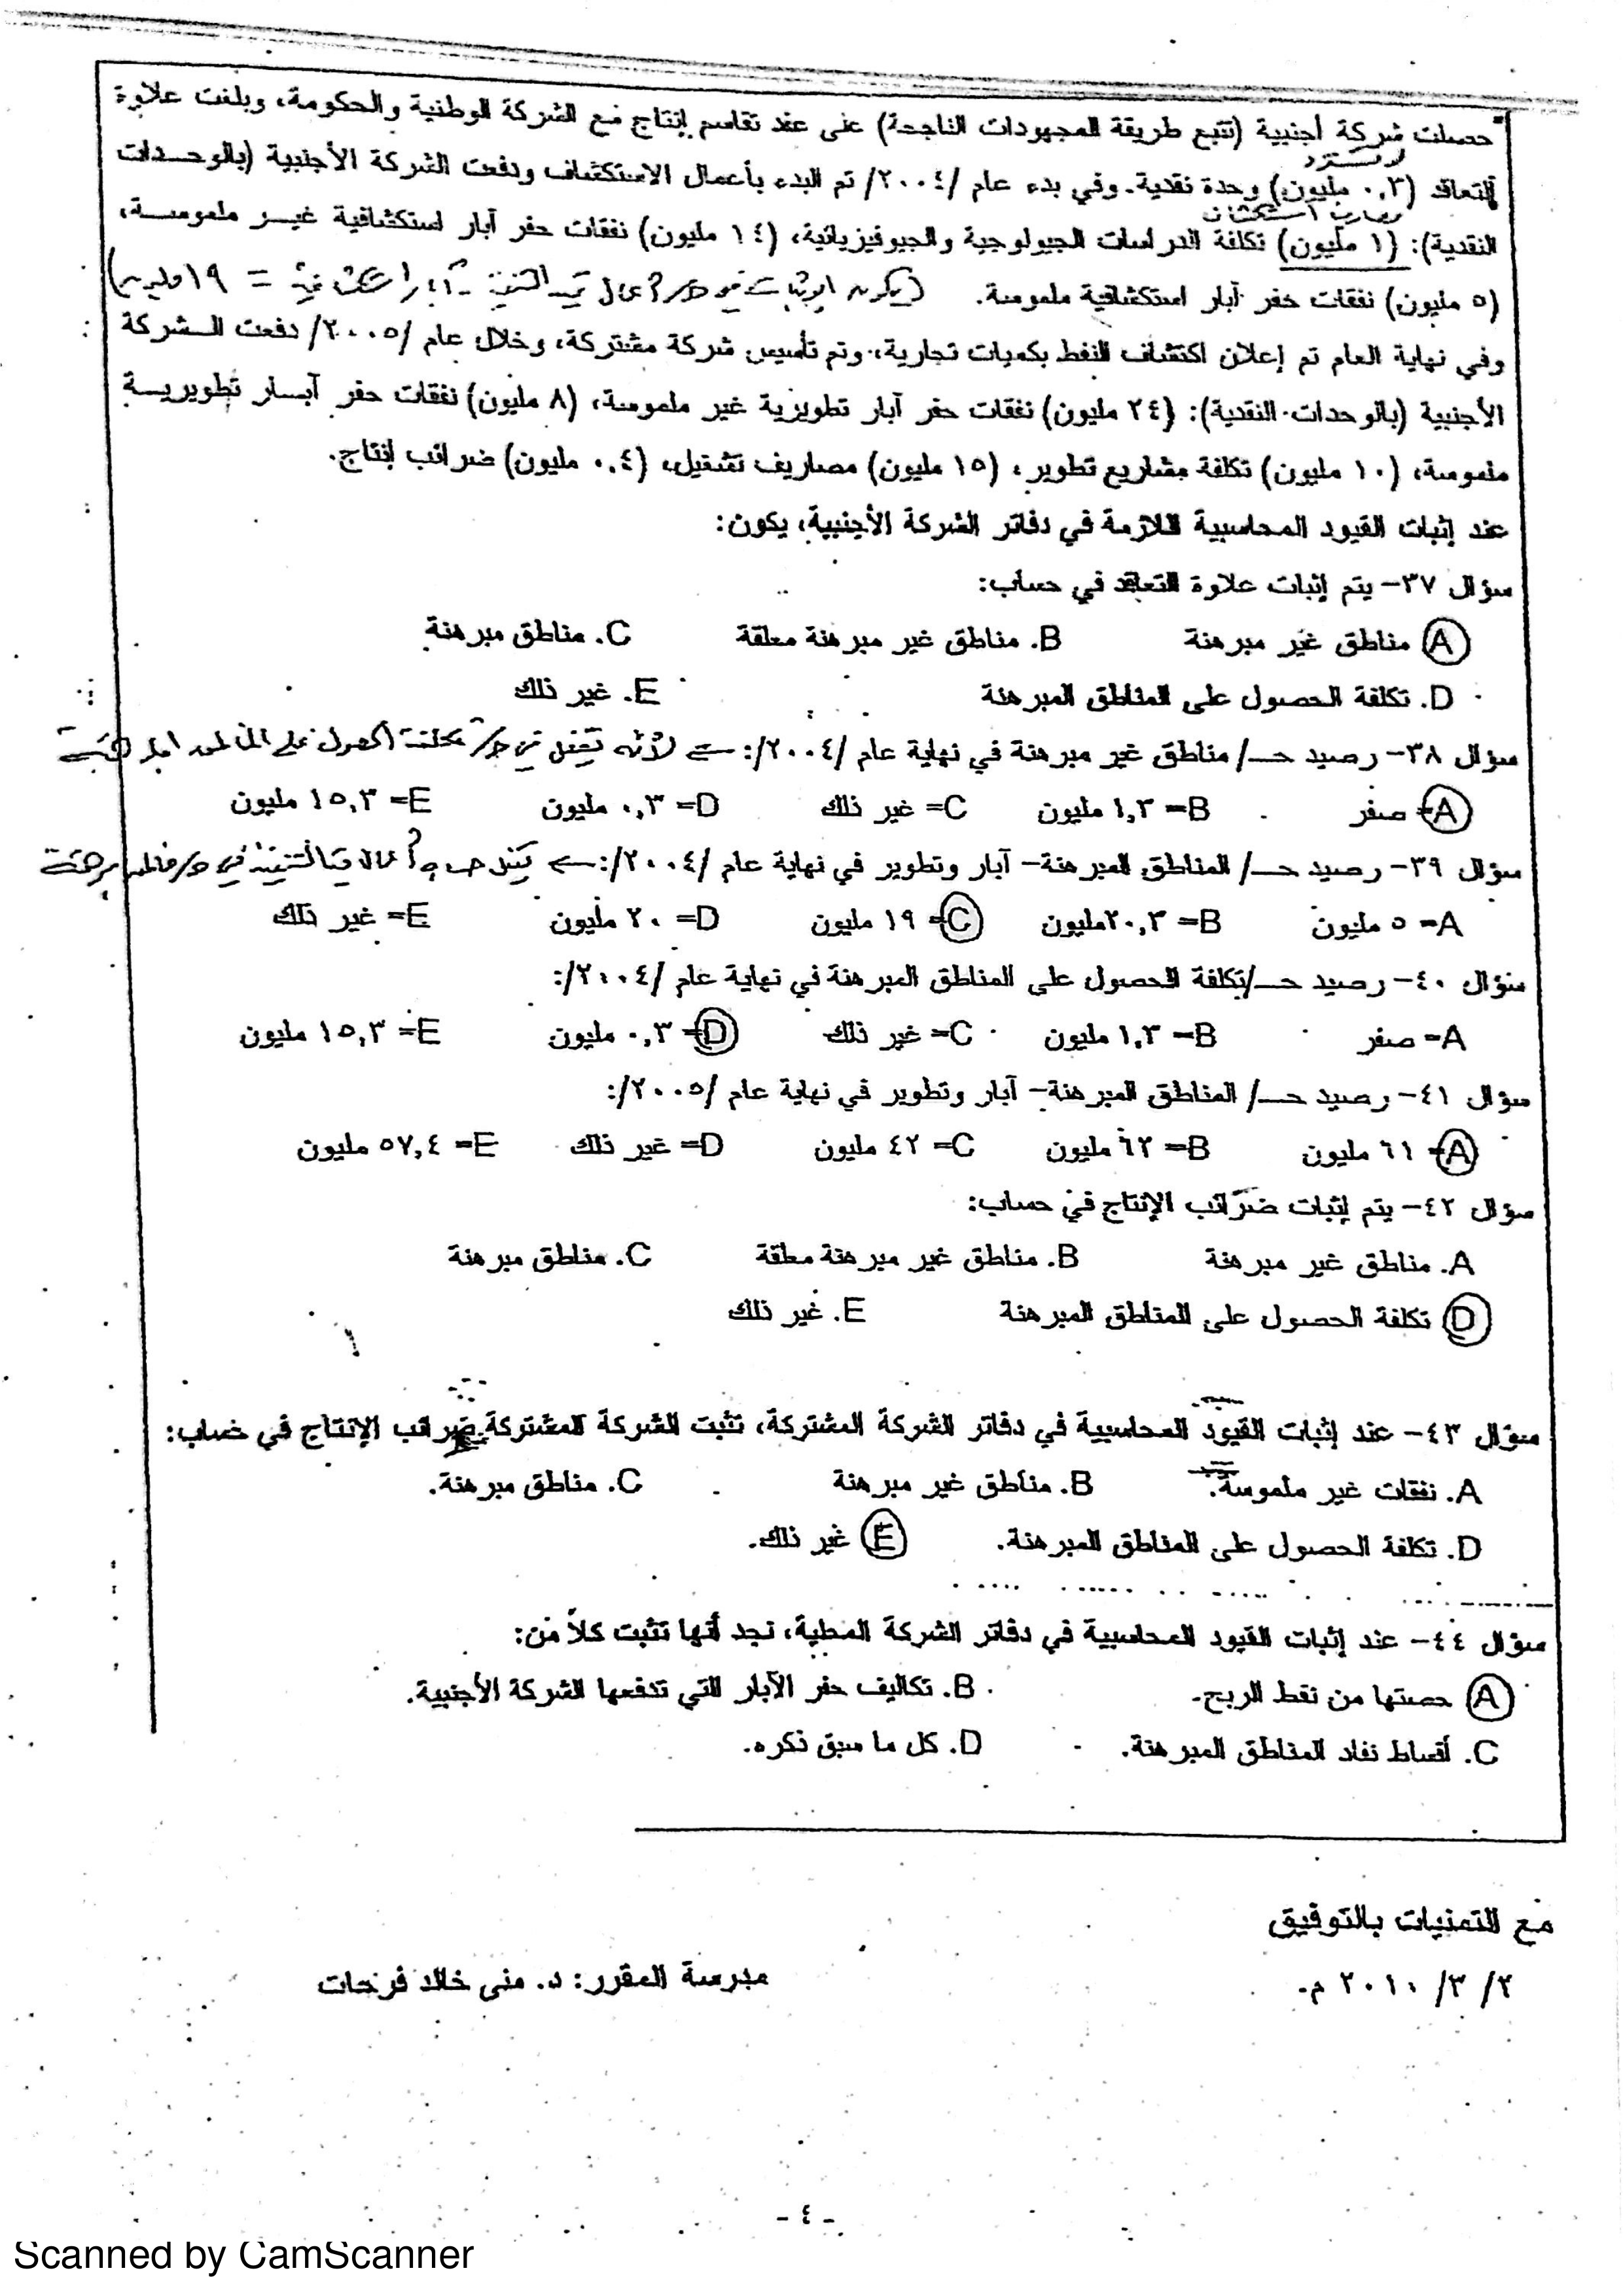 حصلت شركة أجنبية (تتبع طريقة المجهودات الناجحة) على عقد تقاسم إنتاج مع الشركة الوطنية والحكومة، وبلغت علاوة
لا تسترد
التعاقد (٠,٣ مليون) وحدة نقدية. وفي بدء عام /٢٠٠٤/ تم البدء بأعمال الاستكشاف ودفعت الشركة الأجنبية (بالوحدات
مصاريف استكشاف
النقدية): (١ مليون) تكلفة الدراسات الجيولوجية والجيوفيزيائية، (١٤ مليون) نفقات حفر آبار استكشافية غير ملموسة،
(٥ مليون) نفقات حفر آبار استكشافية ملموسة. (يكون الإثبات في حـ/ أعمال تحت التنفيذ - آبار استكشافية = ١٩ مليون)
وفي نهاية العام تم إعلان اكتشاف النفط بكميات تجارية، وتم تأسيس شركة مشتركة، وخلال عام /٢٠٠٥/ دفعت الشركة
الأجنبية (بالوحدات النقدية): (٢٤ مليون) نفقات حفر آبار تطويرية غير ملموسة، (٨ مليون) نفقات حفر آبار تطويرية
ملموسة، (١٠ مليون) تكلفة مشاريع تطوير، (١٥ مليون) مصاريف تشغيل، (٠,٤ مليون) ضرائب إنتاج.
عند إثبات القيود المحاسبية اللازمة في دفاتر الشركة الأجنبية، يكون:
سؤال ٣٧- يتم إثبات علاوة التعاقد في حساب:
A مناطق غير مبرهنة B. مناطق غير مبرهنة معلقة C. مناطق مبرهنة
D. تكلفة الحصول على المناطق المبرهنة E. غير ذلك
سؤال ٣٨- رصيد حـ/ مناطق غير مبرهنة في نهاية عام /٢٠٠٤/: ← لأنه تقفل في حـ/ تكلفة الحصول على المناطق المبرهنة
A= صفر B= ١,٣ مليون C= غير ذلك D= ٠,٣ مليون E= ١٥,٣ مليون
سؤال ٣٩- رصيد حـ/ المناطق المبرهنة- آبار وتطوير في نهاية عام /٢٠٠٤/: ← أعمال قيد التنفيذ في حـ/ مناطق مبرهنة
A= ٥ مليون B= ٢٠,٣مليون C= ١٩ مليون D= ٢٠ مليون E= غير ذلك
سؤال ٤٠- رصيد حـ/تكلفة الحصول على المناطق المبرهنة في نهاية عام /٢٠٠٤/:
A= صفر B= ١,٣ مليون C= غير ذلك D= ٠,٣ مليون E= ١٥,٣ مليون
سؤال ٤١- رصيد حـ/ المناطق المبرهنة- آبار وتطوير في نهاية عام /٢٠٠٥/:
A= ٦١ مليون B= ٦٢ مليون C= ٤٢ مليون D= غير ذلك E= ٥٧,٤ مليون
سؤال ٤٢- يتم إثبات ضرائب الإنتاج في حساب:
A. مناطق غير مبرهنة B. مناطق غير مبرهنة معلقة C. مناطق مبرهنة
D تكلفة الحصول على المناطق المبرهنة E. غير ذلك
سؤال ٤٣- عند إثبات القيود المحاسبية في دفاتر الشركة المشتركة، تثبت الشركة المشتركة ضرائب الإنتاج في حساب:
A. نفقات غير ملموسة. B. مناطق غير مبرهنة C. مناطق مبرهنة.
D. تكلفة الحصول على المناطق المبرهنة. E غير ذلك.
سؤال ٤٤- عند إثبات القيود المحاسبية في دفاتر الشركة المحلية، نجد أنها تثبت كلاً من:
A حصتها من نفط الربح. B. تكاليف حفر الآبار التي تدفعها الشركة الأجنبية.
C. أقساط نفاد المناطق المبرهنة. D. كل ما سبق ذكره.
مع التمنيات بالتوفيق
٢/ ٣/ ٢٠١٠ م.
مدرسة المقرر: د. منى خالد فرحات
- ٤ -
Scanned by CamScanner